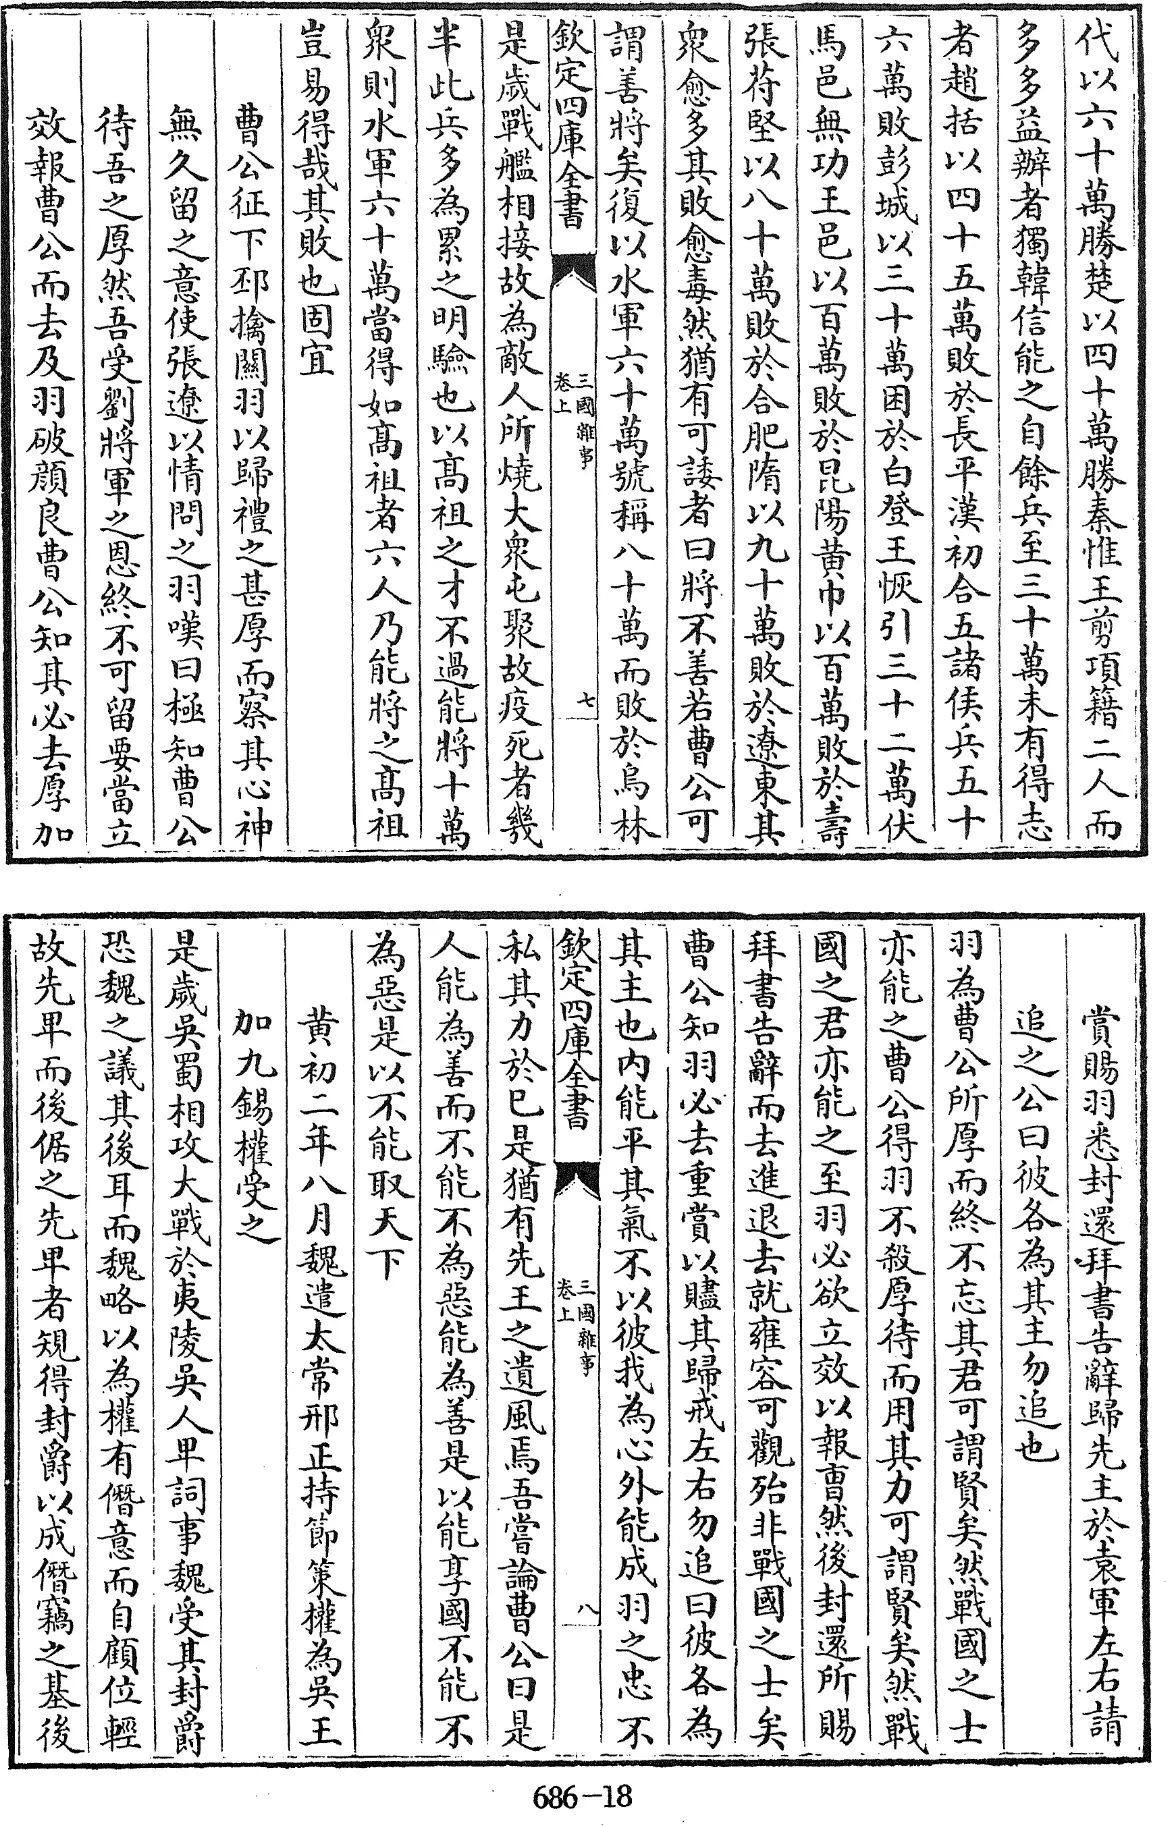 代以六十萬勝楚以四十萬勝秦惟王翦項籍二人而
多多益辦者獨韓信能之自餘兵至三十萬未有得志
者趙括以四十五萬敗於長平漢初合五諸侯兵五十
六萬敗彭城以三十萬困於白登王恢引三十二萬伏
馬邑無功王邑以百萬敗於昆陽黄巾以百萬敗於壽
張苻堅以八十萬敗於合肥隋以九十萬敗於遼東其
衆愈多其敗愈毒然猶有可諉者曰將不善若曹公可
謂善將矣復以水軍六十萬號稱八十萬而敗於烏林
欽定四庫全書
三國雜事
卷上
七
是歲戰艦相接故為敵人所燒大衆屯聚故疫死者幾
半此兵多為累之明驗也以髙祖之才不過能將十萬
衆則水軍六十萬當得如髙祖者六人乃能將之髙祖
豈易得哉其敗也固宜
曹公征下邳擒關羽以歸禮之甚厚而察其心神
無久留之意使張遼以情問之羽嘆曰極知曹公
待吾之厚然吾受劉將軍之恩終不可留要當立
效報曹公而去及羽破顔良曹公知其必去厚加
賞賜羽悉封還拜書告辭歸先主於袁軍左右請
追之公曰彼各為其主勿追也
羽為曹公所厚而終不忘其君可謂賢矣然戰國之士
亦能之曹公得羽不殺厚待而用其力可謂賢矣然戰
國之君亦能之至羽必欲立效以報曹然後封還所賜
拜書告辭而去進退去就雍容可觀殆非戰國之士矣
曹公知羽必去重賞以贐其歸戒左右勿追曰彼各為
其主也内能平其氣不以彼我為心外能成羽之忠不
欽定四庫全書
三國雜事
卷上
八
私其力於已是猶有先王之遺風焉吾嘗論曹公曰是
人能為善而不能不為惡能為善是以能享國不能不
為惡是以不能取天下
黄初二年八月魏遣太常邢正持節策權為吳王
加九錫權受之
是歲吳蜀相攻大戰於夷陵吳人卑詞事魏受其封爵
恐魏之議其後耳而魏略以為權有僭意而自顧位輕
故先卑而後倨之先卑者規得封爵以成僭竊之基後
686-18